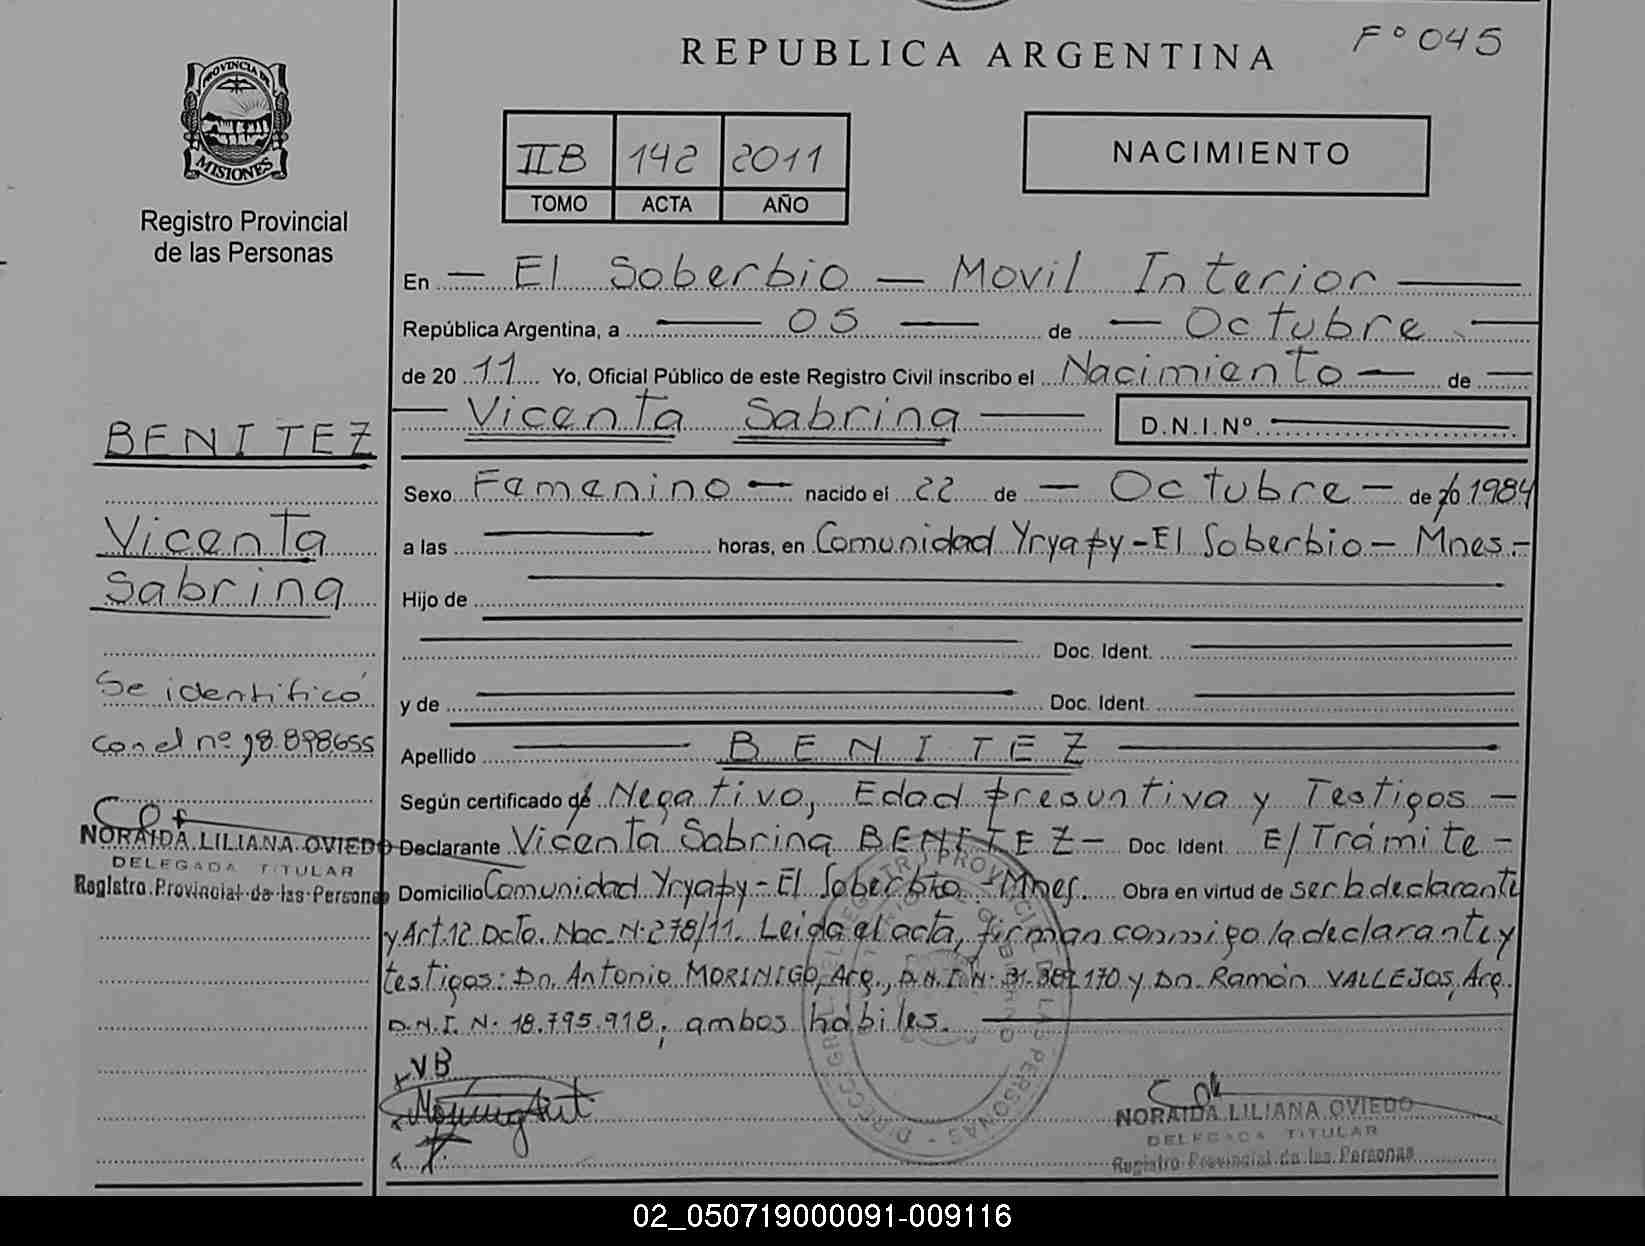 F° 045
REPUBLICA ARGENTINA
PROVINCIA DE
MISIONES
Registro Provincial
de las Personas
IIB 142 2011
TOMO ACTA AÑO
NACIMIENTO
En — El Soberbio — Movil Interior —
República Argentina, a — 05 — de — Octubre —
de 20 11 Yo, Oficial Público de este Registro Civil inscribo el Nacimiento — de —
— Vicenta Sabrina — D.N.I.Nº —
Sexo Femenino — nacido el 22 de — Octubre — de 1984
a las — horas, en Comunidad Yryapy - El Soberbio - Mnes.-
Hijo de
Doc. Ident.
y de Doc. Ident.
Apellido — BENITEZ —
Según certificado Negativo, Edad presuntiva y Testigos —
Declarante Vicenta Sabrina BENITEZ - Doc. Ident. E/Trámite -
Domicilio Comunidad Yryapy - El Soberbio - Mnes. Obra en virtud de ser la declarante
y Art.12 Dcto. Nac. N: 278/11. Leida el acta, firman conmigo la declarante y
testigos: Dn. Antonio MORINIGO, Arg., D.N.I. N: 31.382.170 y Dn. Ramón VALLEJOS, Arg.
D.N.I. N: 18.795.918, ambos hábiles. —
x VB
NORAIDA LILIANA OVIEDO
DELEGADA TITULAR
Registro Provincial de las Personas
BENITEZ
Vicenta
Sabrina
Se identificó
con el nº 98.898655
NORAIDA LILIANA OVIEDO
DELEGADA TITULAR
Registro Provincial de las Personas
02_050719000091-009116